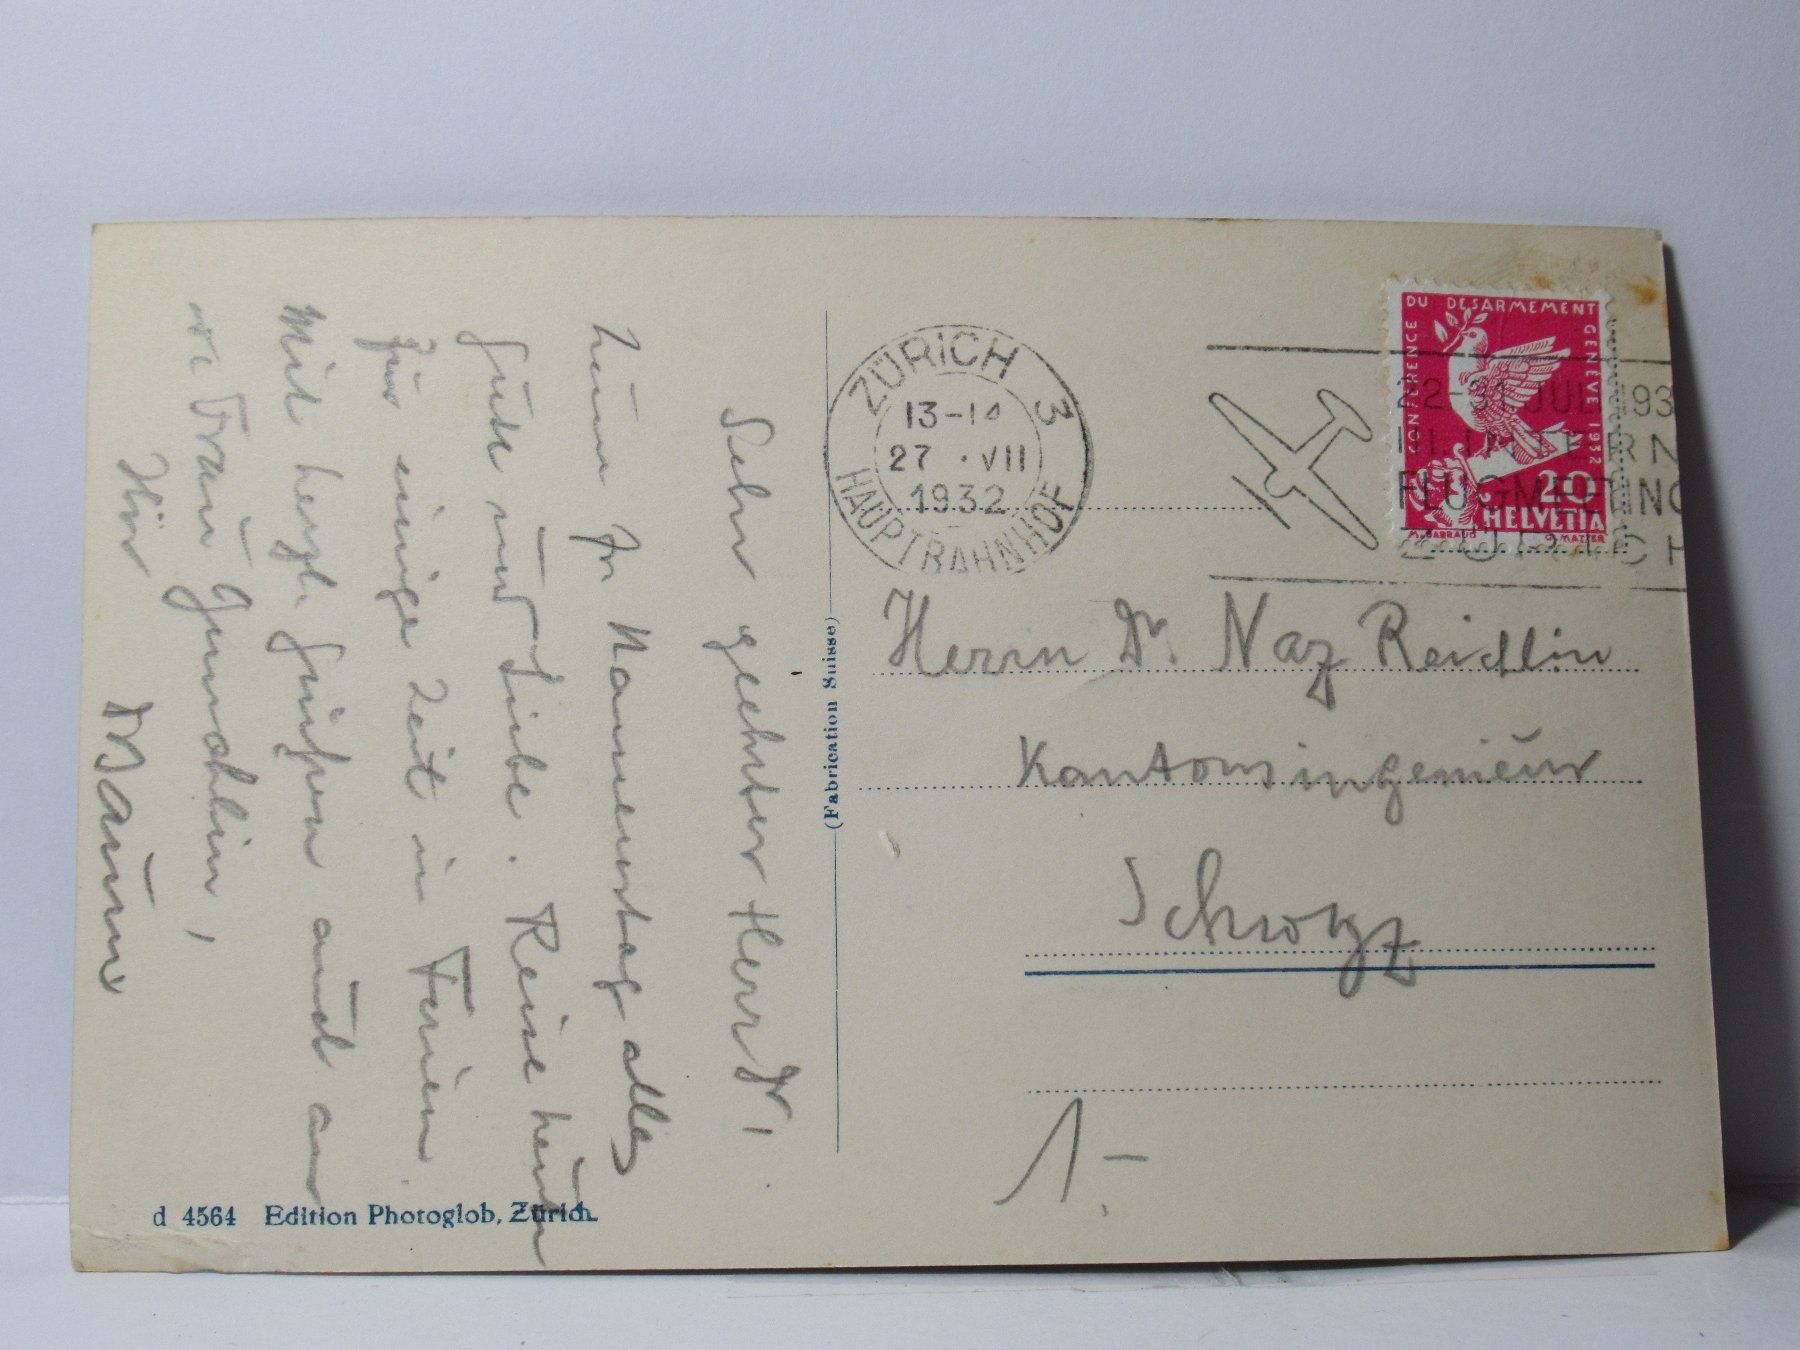 Sehr geehrter Herr Dr,
zum Namenstag alles
Gute und Liebe. Reise heute
für einige Zeit in Ferien.
Mit herzl. Grüßen auch an
Frau Gemahlin,
Ihr
Baum
(Fabrication Suisse)
d 4564 Edition Photoglob, Zürich.
ZÜRICH 3
13-14
27 . VII
1932
HAUPTBAHNHOF
CONFERENCE DU DESARMEMENT GENÈVE 1932
20
HELVETIA
M. BARRAUD G. MATTER
22-31 JULI 193
INTERN
FLUGMEETING
ZÜRICH
Herrn Dr. Naz Reichlin
Kantonsingenieur
Schwyz
1.-